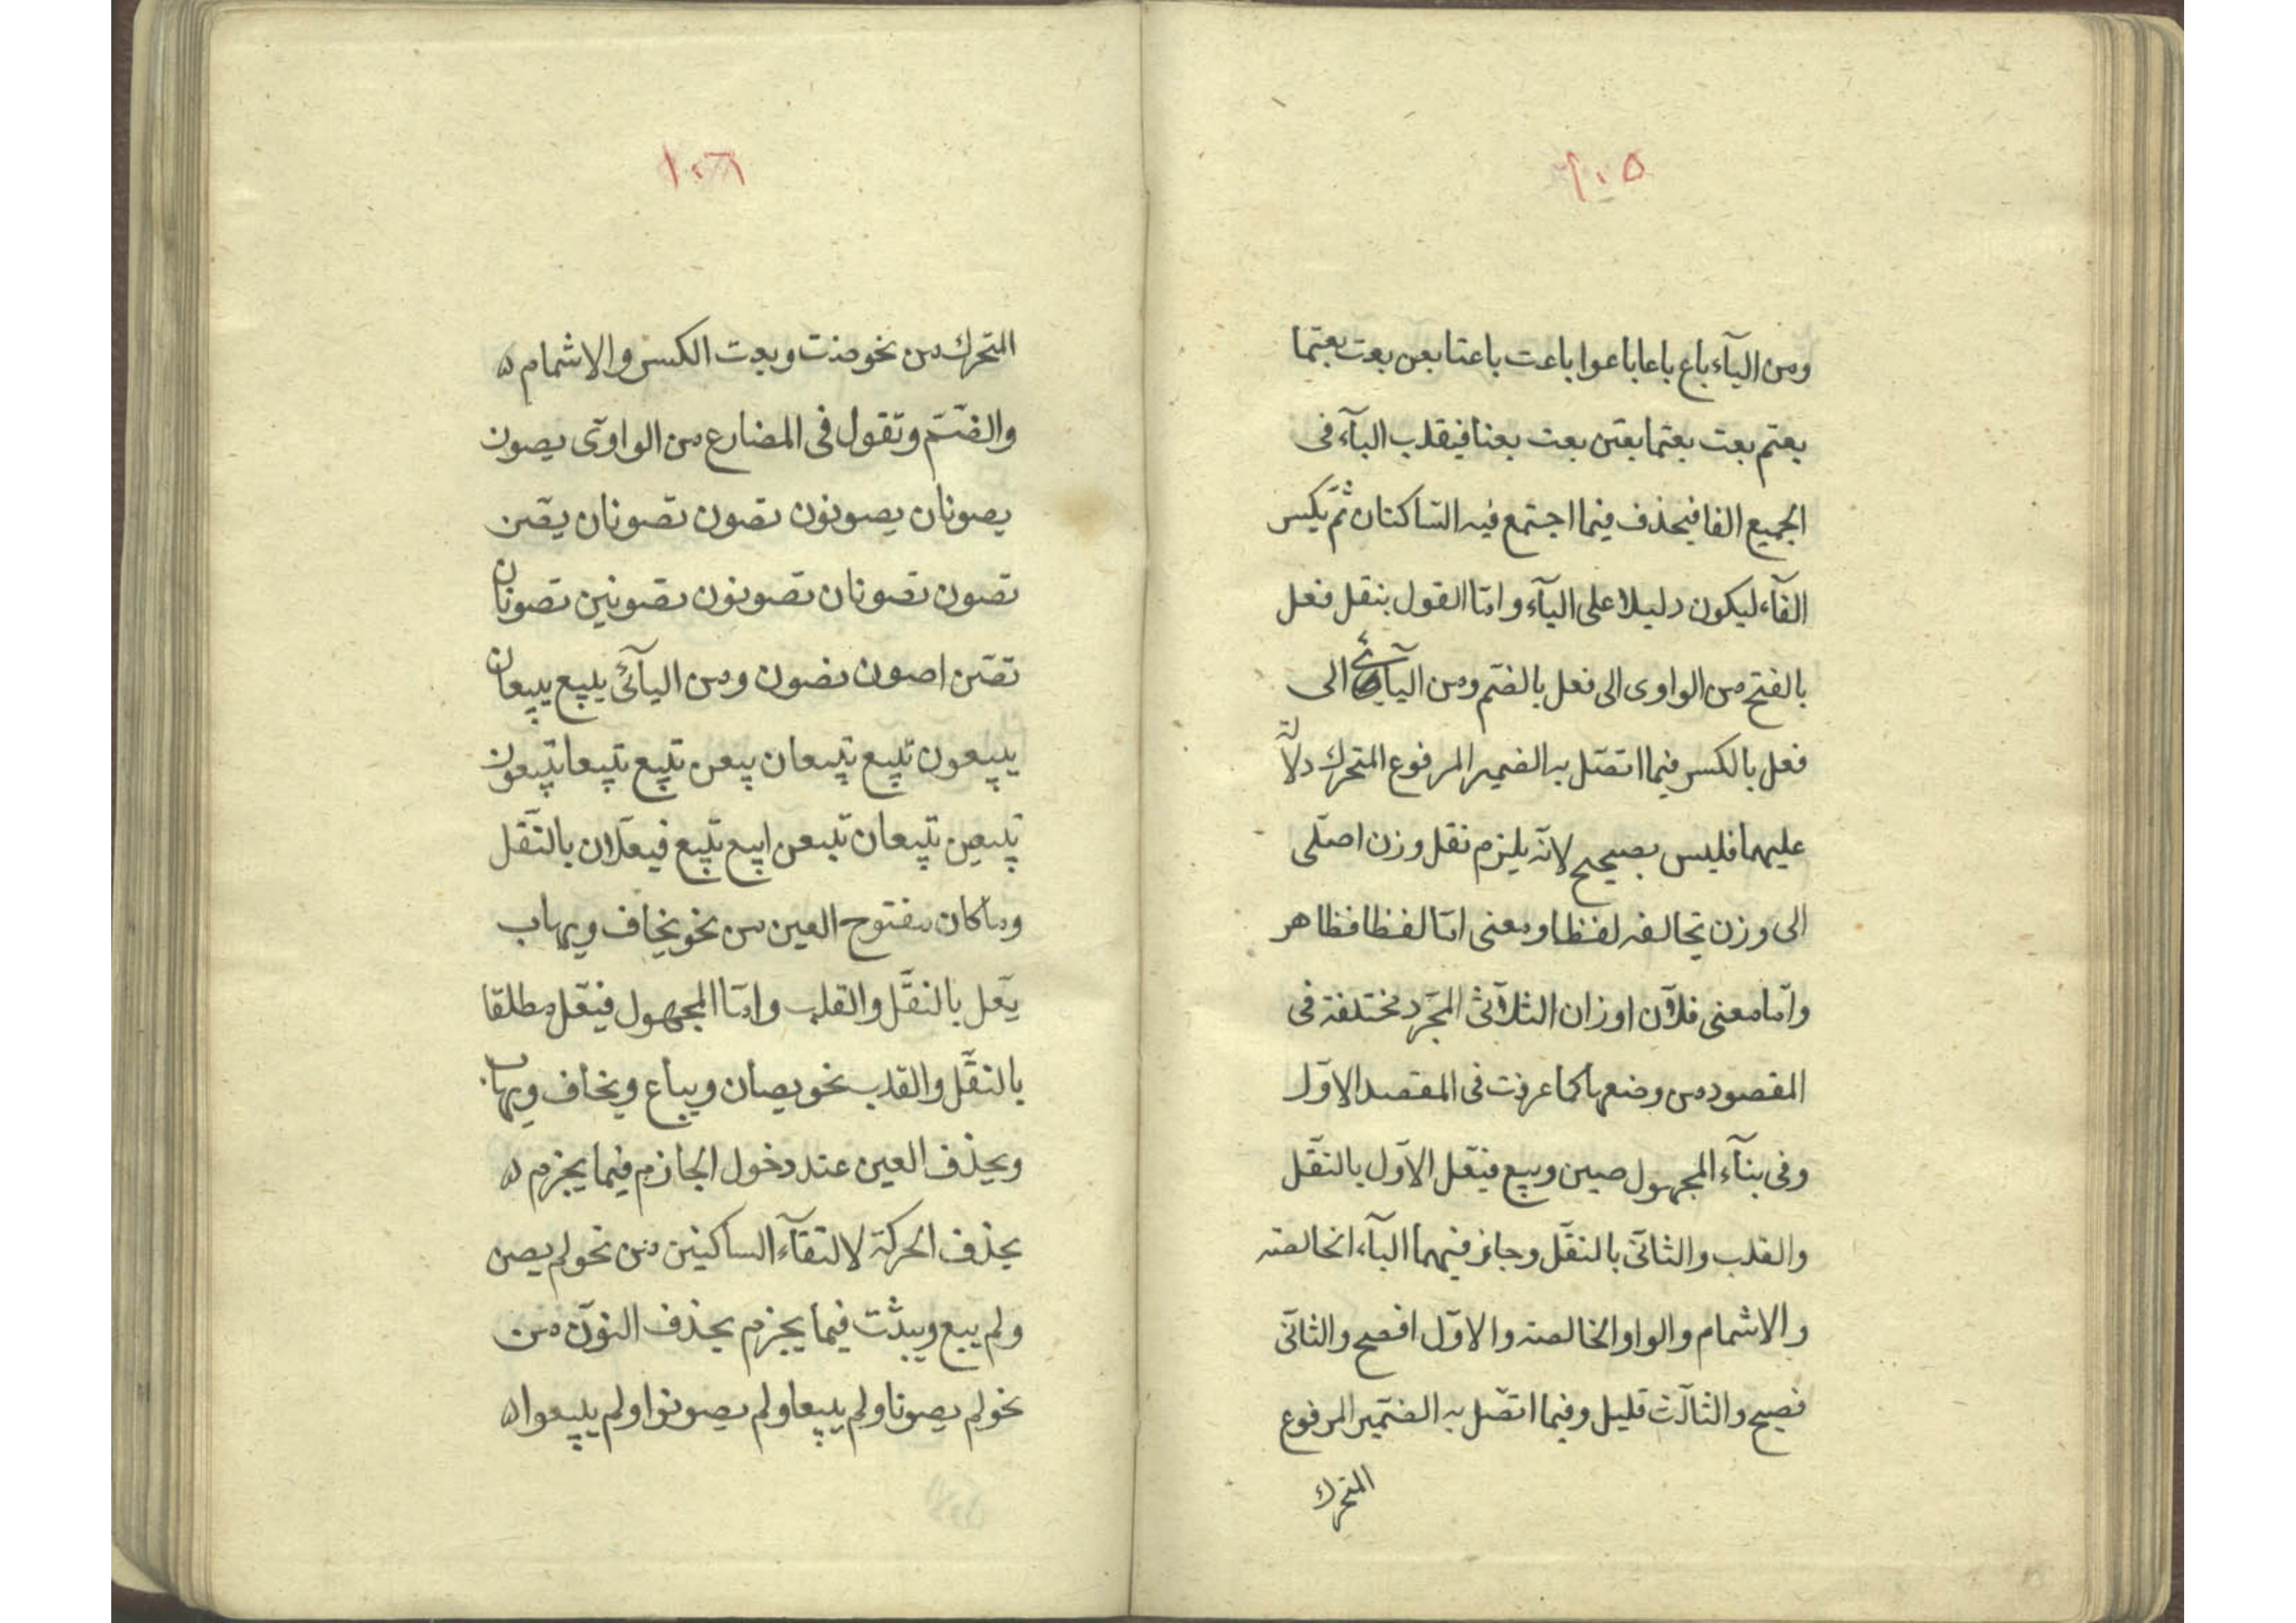 ١٠٥
ومن اليآء باع باعا باعوا باعت باعتا بعن بعت بعتما
بعتم بعت بعتما بعتن بعت بعنا فيقلب اليآء فى
الجميع الفا فيحذف فيما اجتمع فيه الساكنان ثم يكسر
الفآء ليكون دليلا على اليآء وامّا القول بنقل فعل
بالفتح من الواوى الى فعل بالضّم ومن اليآئى الى
فعل بالكسر فيما اتصّل به الضمير المرفوع المتحرك دلالة
عليهما فليس بصحيح لانّه يلزم نقل وزن اصلّى
الى وزن يخالفه لفظا ومعنى امّا لفظا فظاهر
وامّا معنى فلآن اوزان الثلآثىّ المجرّد مختلفة فى
المقصود من وضعها كما عرفت فى المقصد الاوّل
وفى بنآء المجهول صين وبيع فيعّل الاوّل بالنقّل
والقلب والثانىّ بالنقّل وجاز فيهما اليآء الخالصة
والاشمام والواو الخالصة والاوّل افصح والثانىّ
فصيح والثالّث قليل وفيما اتصّل به الضمّير المرفوع
المتحرك
١٠٦
المتحرك من نحو صنت وبعت الكسر والاشمام ه
والضّم وتقول فى المضارع من الواوىّ يصون
يصونان يصونون تصون تصونان يصّن
تصون تصونان تصونون تصونين تصونان
تصّن اصون نصون ومن اليآئىّ يبيع يبيعان
يبيعون تبيع تبيعان يبعن تبيع تبيعا تبيعون
تبيعين تبيعان تبعن ابيع نبيع فيعلّان بالنقّل
وما كان مفتوح العين من نحو يخاف ويهاب
يعّل بالنقّل والقلب وامّا المجهول فيعّل مطلقا
بالنقّل والقلب نحو يصان ويباع ويخاف ويهاب
ويحذف العين عند دخول الجازم فيما يجزم ه
بحذف الحركة لالتقآء الساكنين من نحو لم يصن
ولم يبع ويثبّت فيما يجزم بحذف النوّن من
نحو لم يصونا ولم يبيعا ولم يصونوا ولم يبيعوا ه